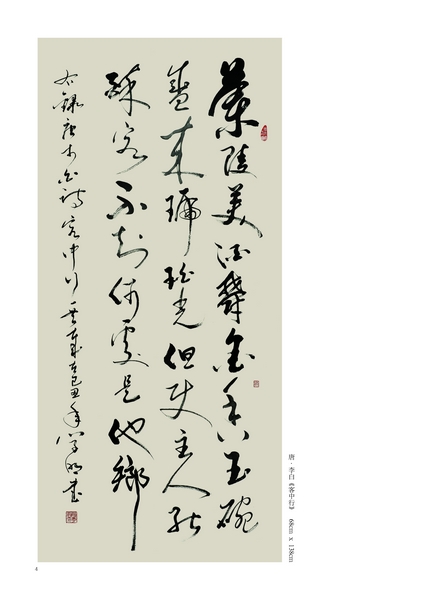 蘭陵美酒鬱金香玉碗
盛来琥珀光但使主人能
醉客不知何處是他鄉
右録唐李白詩客中行一首歲在己丑年書
唐·李白《客中行》 68cm x 138cm
4